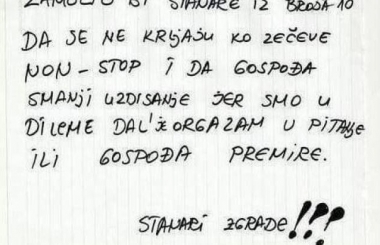 ZAMOLIO BI STANARE IZ BROJA 10
DA SE NE KRLJAJU KO ZEČEVE
NON-STOP I DA GOSPOĐA
SMANJI UZDISANJE JER SMO U
DILEME DAL' JE ORGAZAM U PITANJE
ILI GOSPOĐA PREMIRE.
STANARI ZGRADE!!??